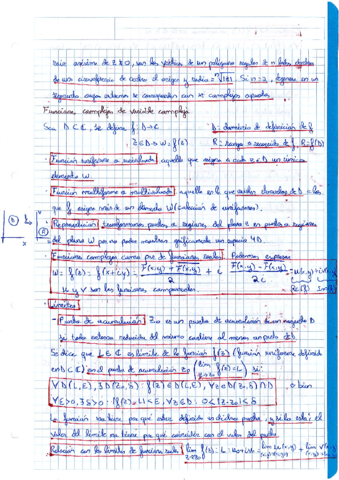 raíz enésima de z≠0, son los vértices de un polígono regular de n lados
de una circunferencia de centro el origen y radio = ⁿ√|z|. Si n=2, degenera en un
segmento cuyos extremos se corresponden con complejos opuestos.
Funciones complejas de variable compleja
Sea D⊂ℂ, se define f: D→ℂ D = dominio de definición de f
z∈D→W=f(z) R = rango o recorrido de f, R=f(D)
Función uniforme o univaluada: aquella que asigna a cada z∈D un único
elemento W.
Función multiforme o multivaluada: aquella en la que existen elementos de D a los
que f asigna más de un elemento W
Representación: transformamos puntos o regiones del plano z en puntos o regiones
del plano W por no poder mostrar gráficamente un espacio 4D.
Funciones complejas como par de funciones reales: Podemos expresar
W=f(z)=f(x+iy)=
2 2i
u y v son las funciones componentes.
Límites:
- Punto de acumulación: z₀ es un punto de acumulación de un conjunto D
si todo entorno reducido del mismo contiene al menos un punto de D.
Se dice que L∈ℂ es límite de la función f(z) (función uniforme definida
en D⊂ℂ) en el punto de acumulación z₀ (lim f(z)=L) si:
z→z₀
∀D(L,ε), ∃D(z₀,δ): f(z)∈D(L,ε), ∀z∈D(z₀,δ)∩D , o bien
∀ε>0, ∃δ>0: |f(z)-L|<ε, ∀z∈D: 0<|z-z₀|<δ
La función no tiene por qué estar definida en dichos puntos, y si lo está, el
valor del límite no tiene por qué coincidir con el valor del punto.
Relación con los límites de funciones reales: lim f(z)=L